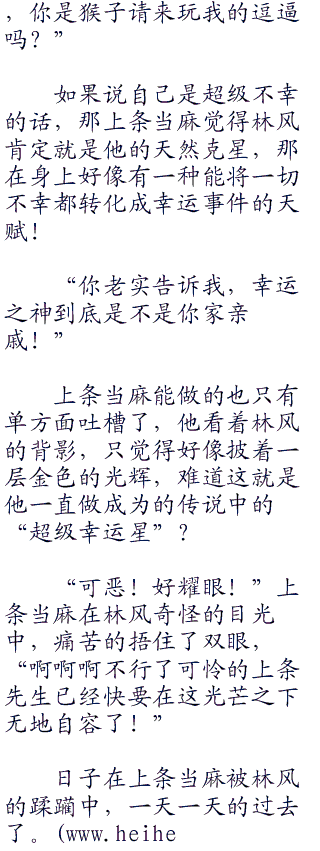 ，你是猴子请来玩我的逗逼
吗？”
如果说自己是超级不幸
的话，那上条当麻觉得林风
肯定就是他的天然克星，那
在身上好像有一种能将一切
不幸都转化成幸运事件的天
赋！
“你老实告诉我，幸运
之神到底是不是你家亲
戚！”
上条当麻能做的也只有
单方面吐槽了，他看着林风
的背影，只觉得好像披着一
层金色的光辉，难道这就是
他一直做成为的传说中的
“超级幸运星”？
“可恶！好耀眼！”上
条当麻在林风奇怪的目光
中，痛苦的捂住了双眼，
“啊啊啊不行了可怜的上条
先生已经快要在这光芒之下
无地自容了！”
日子在上条当麻被林风
的蹂躏中，一天一天的过去
了。(www.heihe